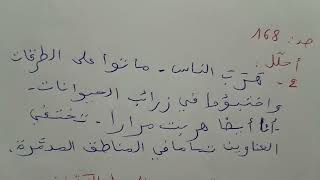 صد: 168
أحلّل:
2- هَرَبَ الناس - ماتوا على الطرقات
واختبؤوا في زرائب الحيوانات -
أنا أيضا هربت مرارا - تختفي
العناوين تماما في المناطق المدمّرة.